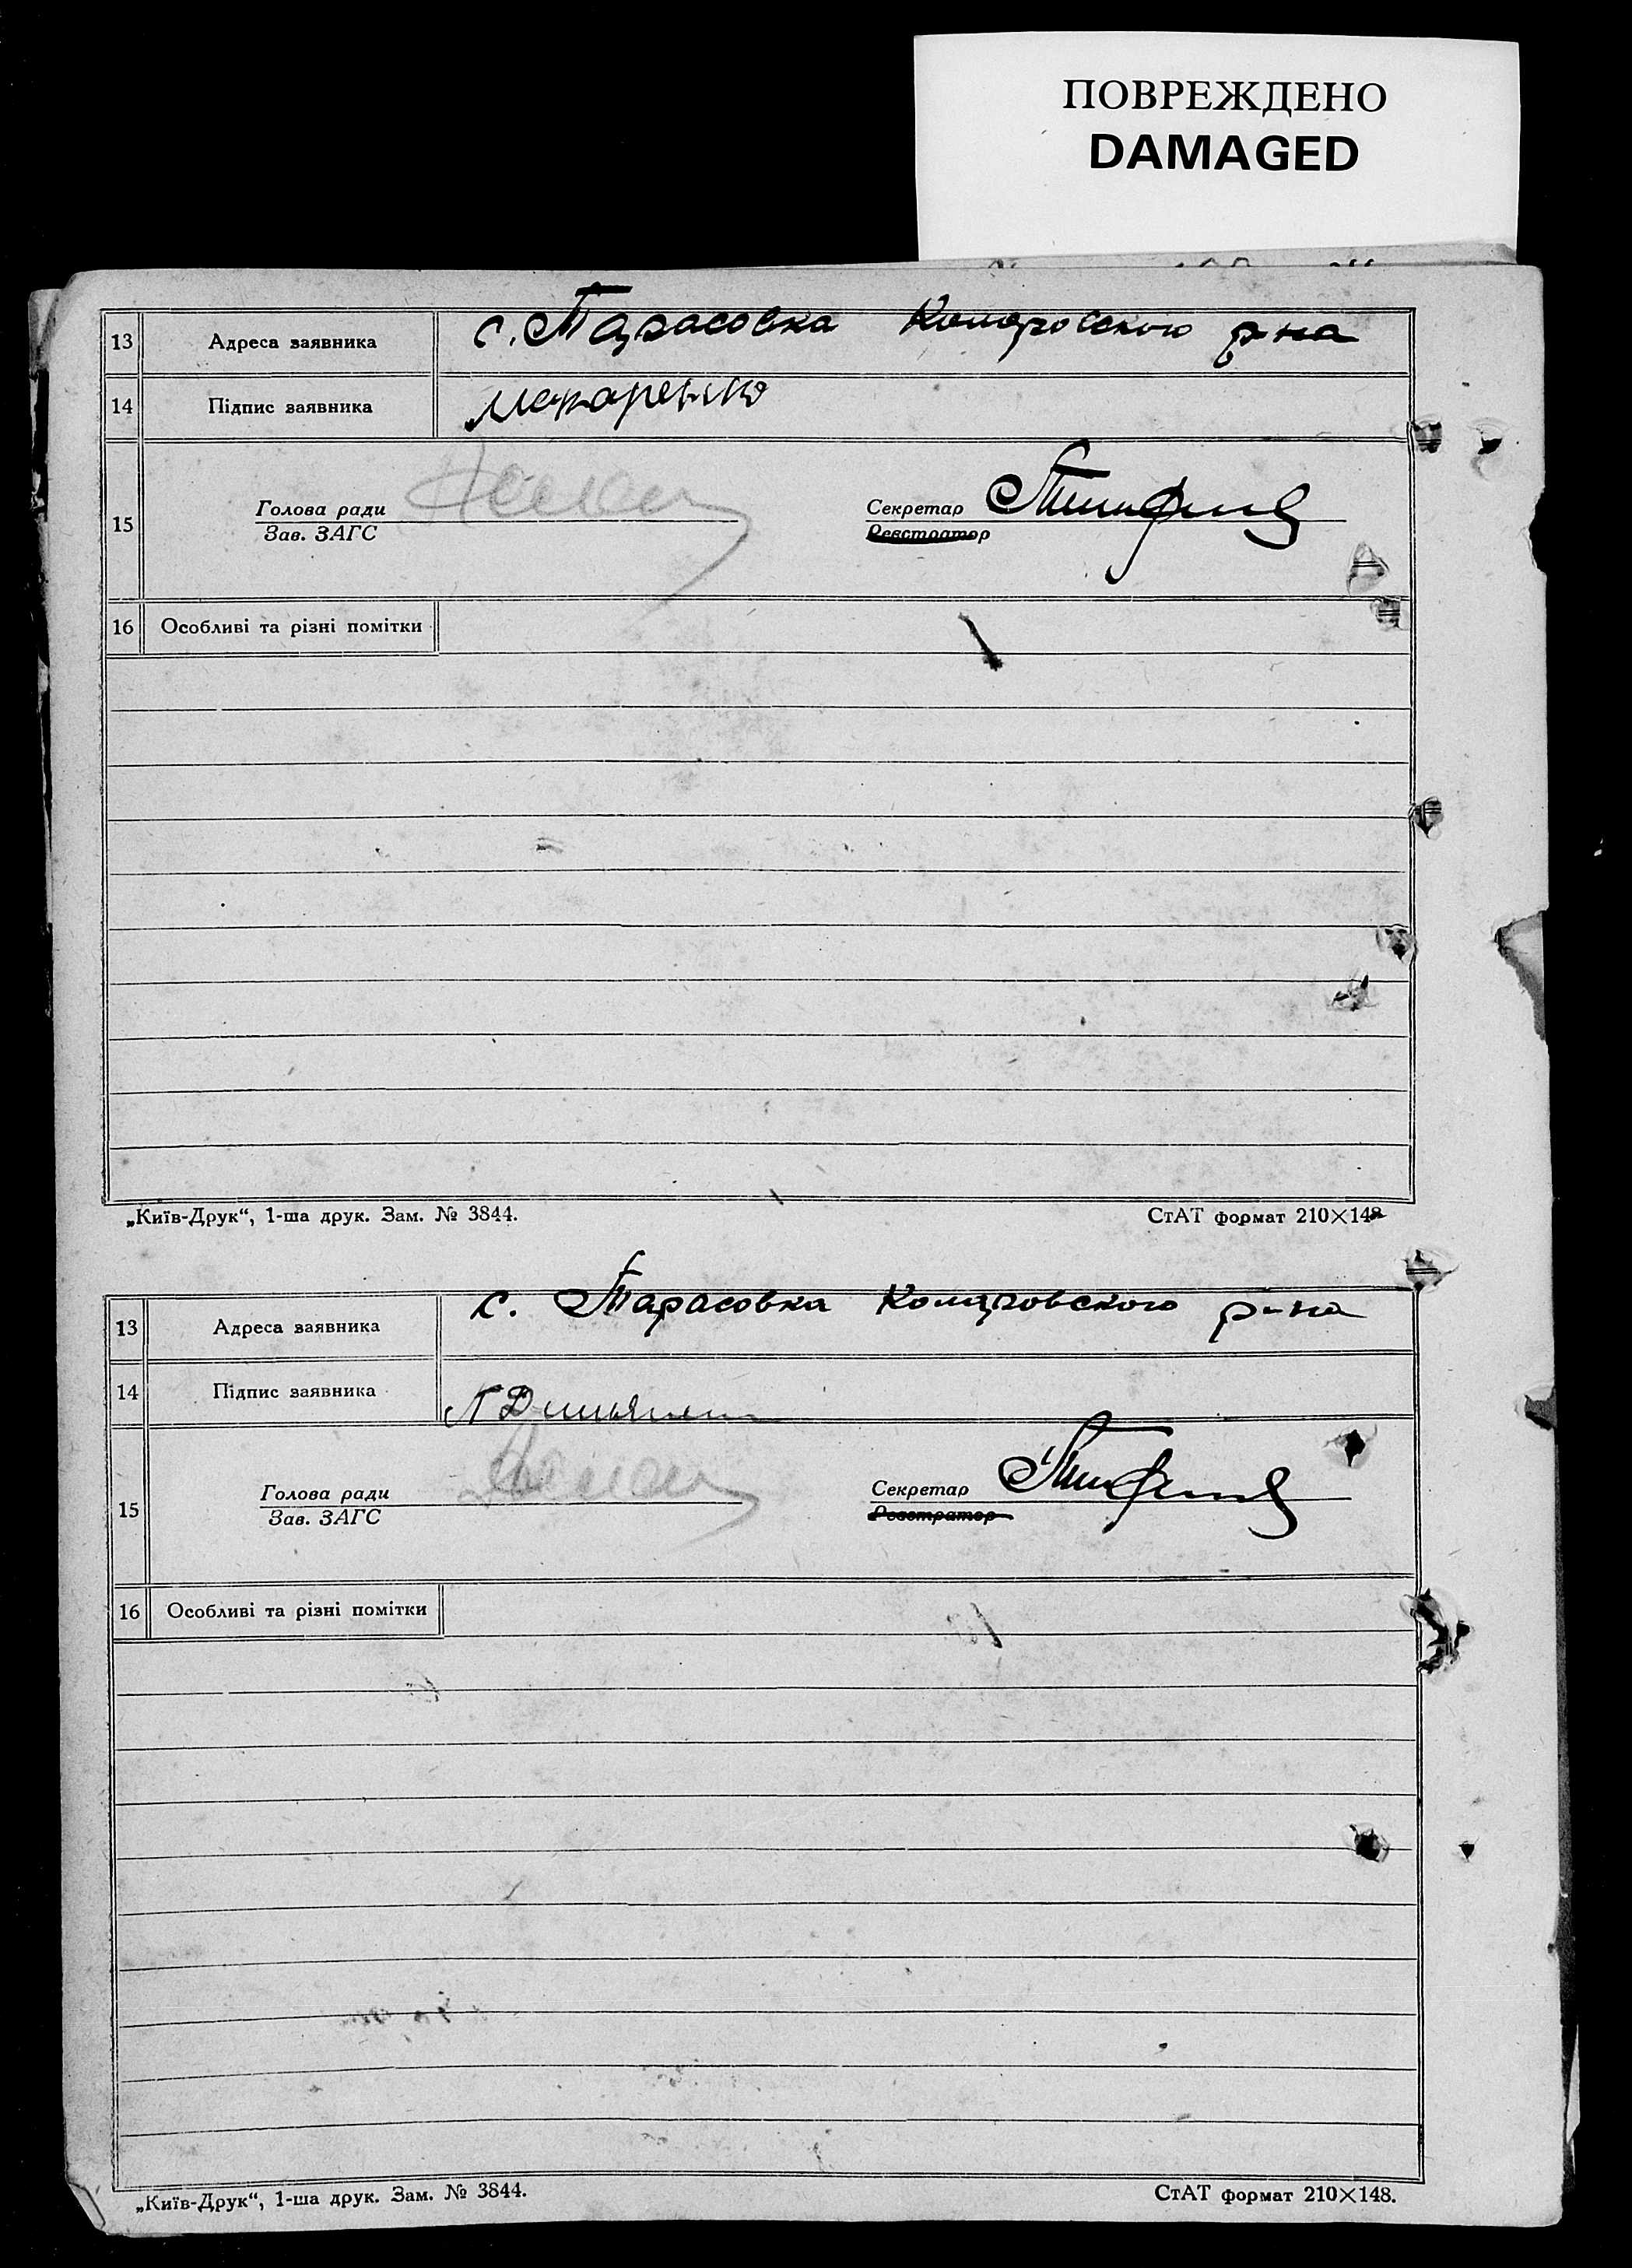 ПОВРЕЖДЕНО
DAMAGED
13 Адреса заявника с. Тарасовка Комаровского р-на
14 Підпис заявника Макаренко
Голова ради Секретар
15
Зав. ЗАГС Реєстратор
16 Особливі та різні помітки
„Київ-Друк“, 1-ша друк. Зам. № 3844. СтАТ формат 210×148
13 Адреса заявника с. Тарасовка Комаровского р-на
14 Підпис заявника
Голова ради Секретар
15
Зав. ЗАГС Реєстратор
16 Особливі та різні помітки
„Київ-Друк“, 1-ша друк. Зам. № 3844. СтАТ формат 210×148.